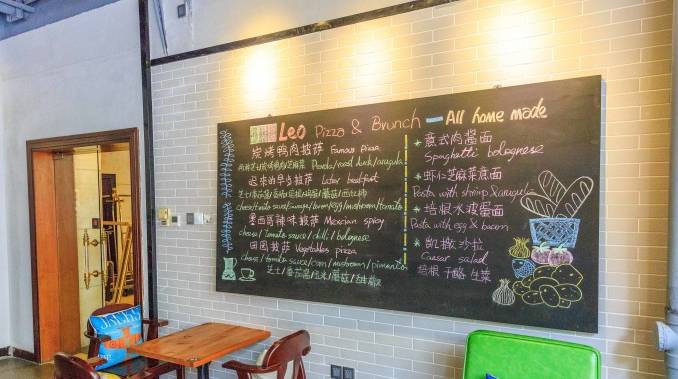 Leo Pizza & Brunch — All home made
炭烤鸭肉披萨 Famous pizza
roast duck/arugula
迟来的早步披萨 Later breakfast
cheese/tomato sauce/sausage/bacon/egg/mushroom/tomato
墨西哥辣味披萨 Mexcian spicy
cheese/tomato sauce/chilli/bolognese
田园披萨 Vegetables pizza
cheese/tomato sauce/corn/mushroom/pimento
芝士/番茄酱/玉米/蘑菇/甜椒
意式肉酱面
Spaghetti bolognese
虾仁芝麻菜意面
Pasta with shrimp & arugula
培根水波蛋面
Pasta with egg & bacon
凯撒沙拉
Caesar salad
培根 干酪 生菜